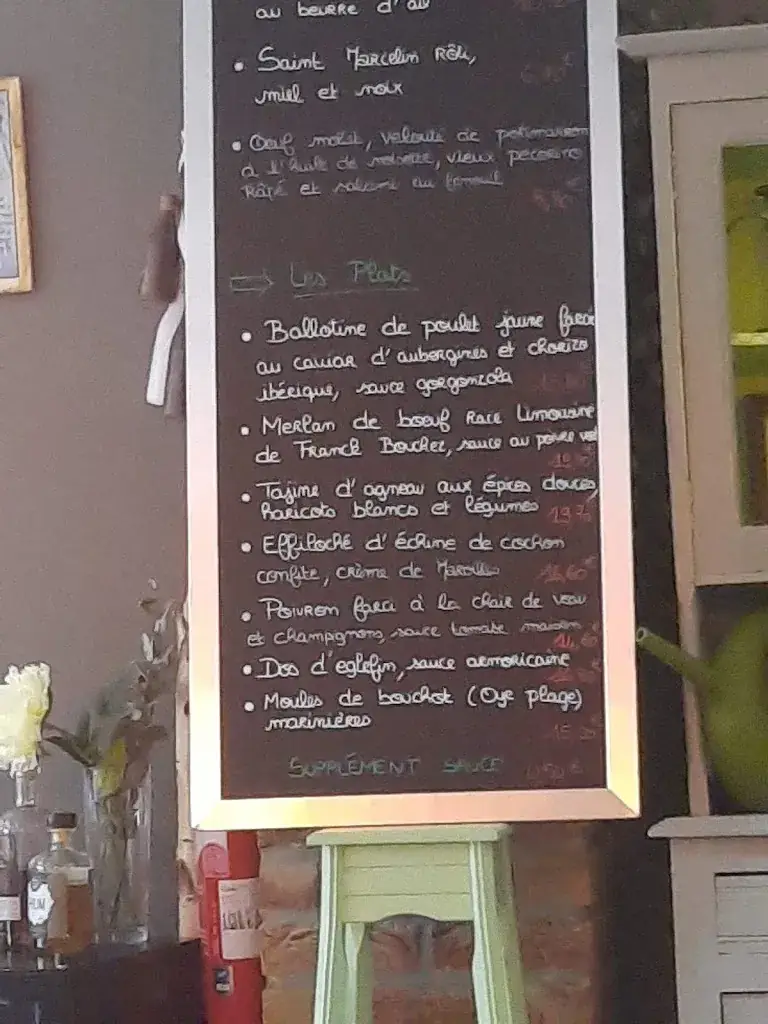 au beurre d'ail
• Saint Marcelin Rôti,
miel et noix
• Oeuf molet, velouté de potimarron
à l'huile de noisette, vieux pecorino
Râpé et
⇒ Les Plats
• Ballotine de poulet jaune farci
au caviar d'aubergines et chorizo
ibérique, sauce gorgonzola
• Merlan de boeuf Race Limousine
de Franck Boucher, sauce au poivre vert
• Tajine d'agneau aux épices douces,
haricots blancs et légumes
• Effiloché d'échine de cochon
confite, crème de Maroilles
• Poivron farci à la chair de veau
et champignons, sauce tomate maison
• Dos d'eglefin, sauce armoricaine
• Moules de bouchot (Oye plage)
marinières
SUPPLÉMENT SAUCE